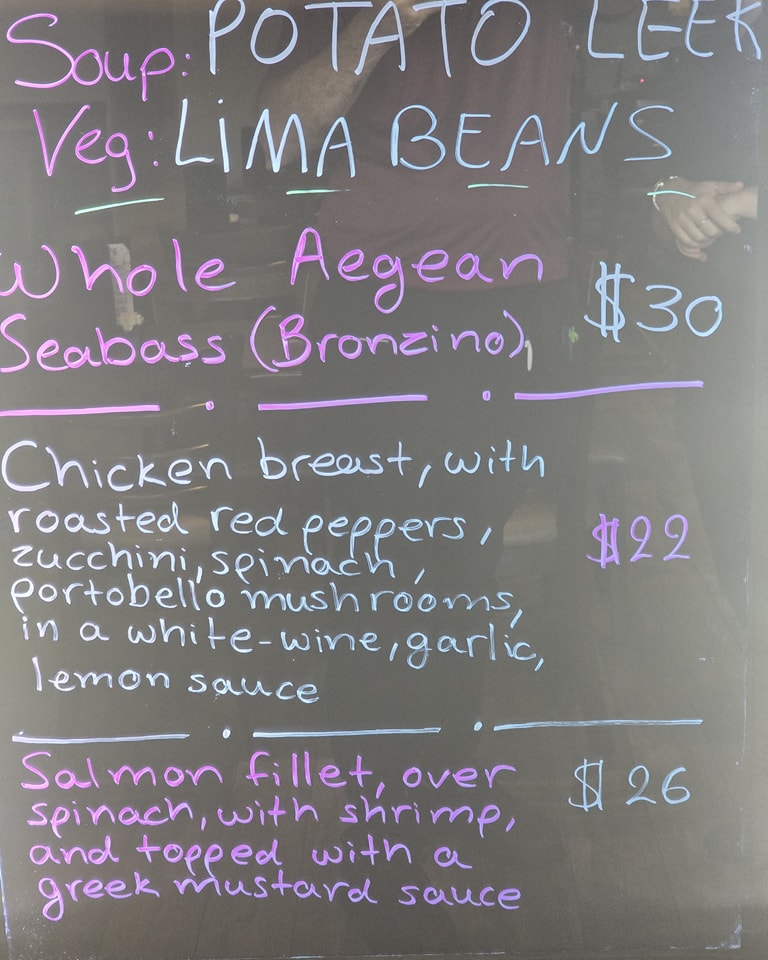 Soup: POTATO LEEK
Veg: LIMA BEANS
Whole Aegean
Seabass (Bronzino), $30
Chicken breast, with
roasted red peppers, $22
zucchini, spinach,
portobello mushrooms,
in a white-wine, garlic,
lemon sauce
Salmon fillet, over $26
spinach, with shrimp,
and topped with a
greek mustard sauce